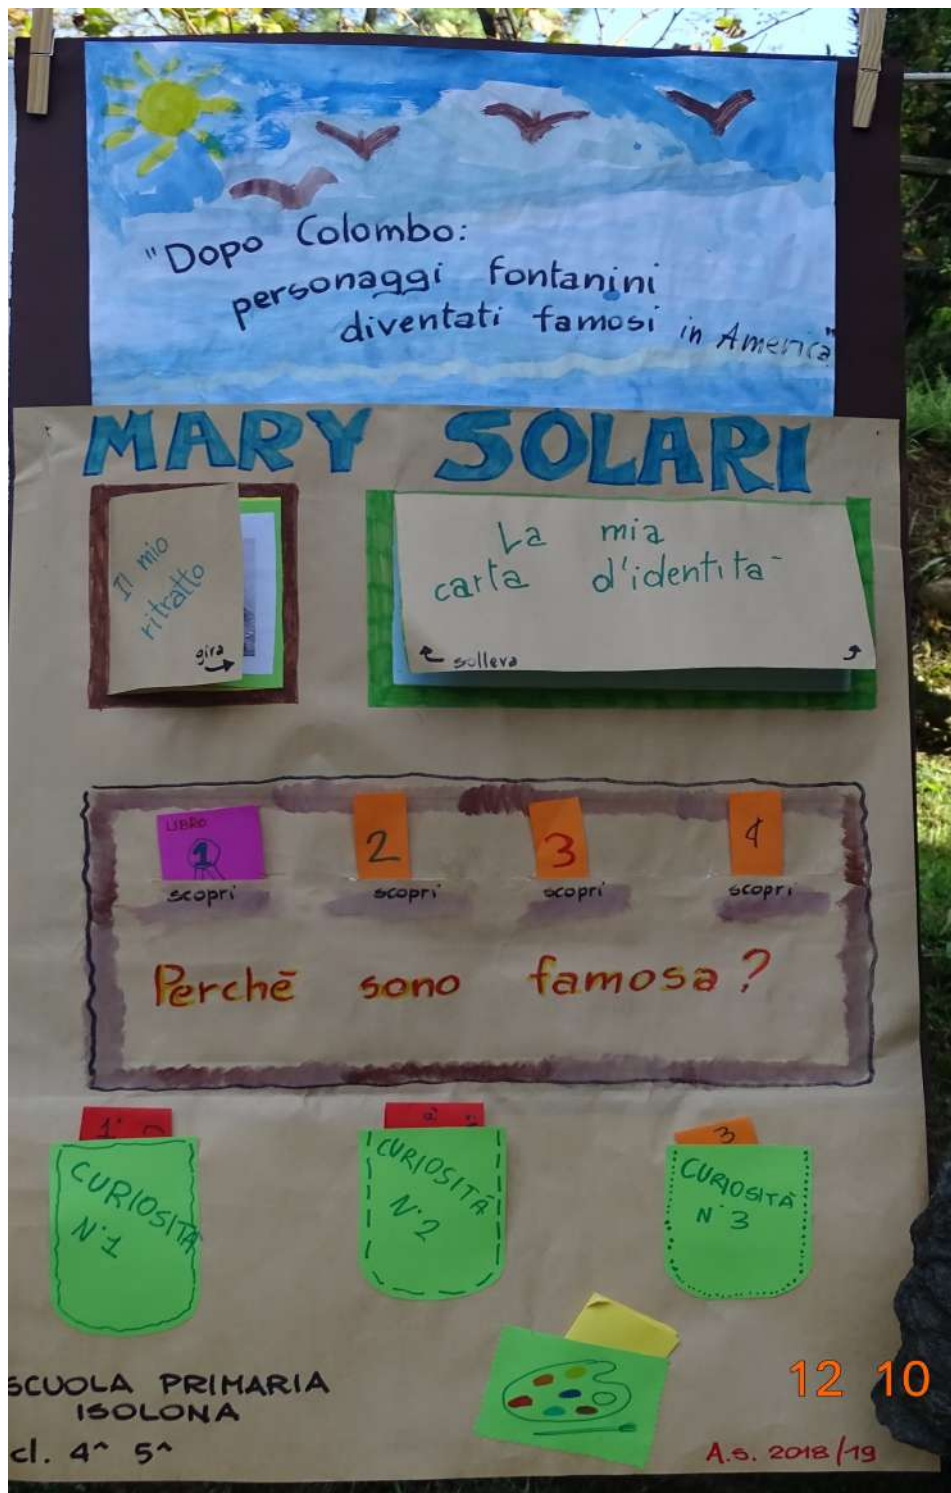 "Dopo Colombo:
personaggi fontanini
diventati famosi in America"
MARY SOLARI
Il mio
ritratto
gira
La mia
carta d'identità
solleva
LIBRO
1
2
3
4
scopri
scopri
scopri
scopri
Perchè sono famosa?
1°
3
CURIOSITÀ
N°1
CURIOSITÀ
N°2
CURIOSITÀ
N°3
SCUOLA PRIMARIA
ISOLONA
cl. 4^ 5^
12 10
A.S. 2018/19